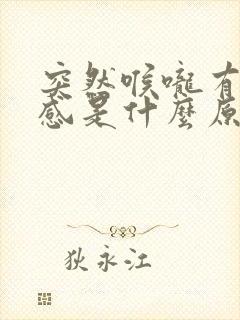 突然喉嚨有
感是什麼原
狄永江